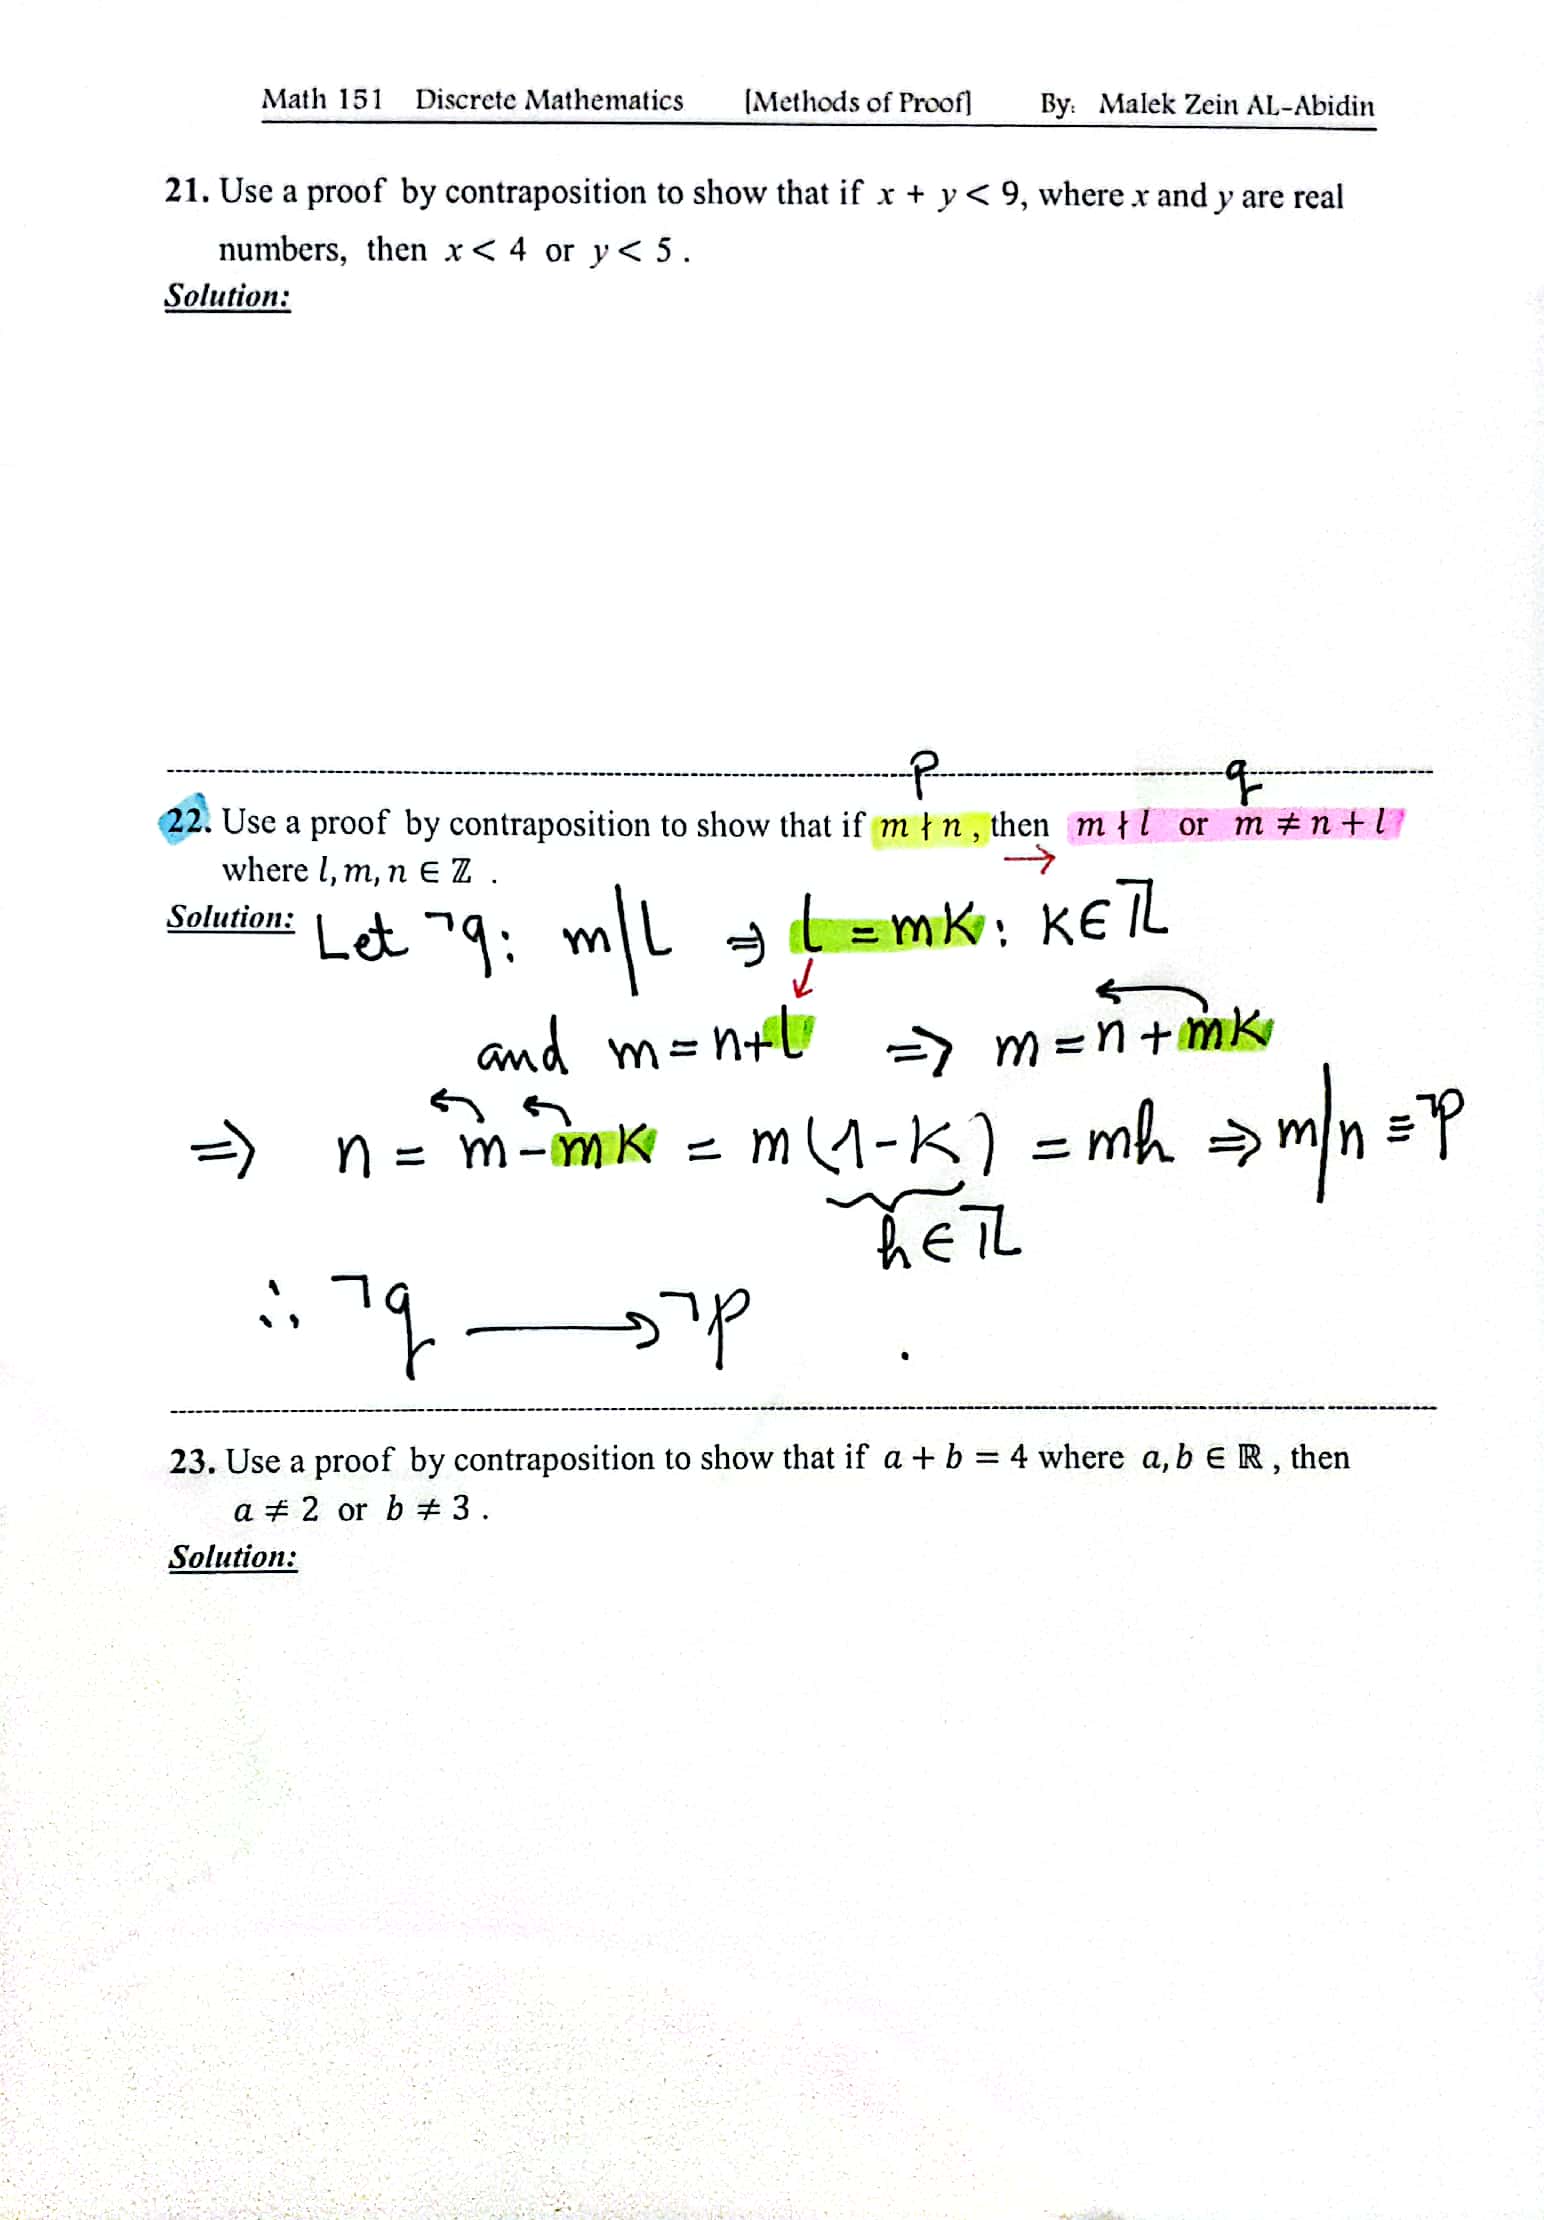 Math 151 Discrete Mathematics [Methods of Proof] By: Malek Zein AL-Abidin
21. Use a proof by contraposition to show that if x + y < 9, where x and y are real
numbers, then x < 4 or y < 5 .
Solution:
p q
22. Use a proof by contraposition to show that if m ∤ n , then m ∤ l or m ≠ n + l
→
where l, m, n ∈ ℤ .
Solution: Let ¬q: m|l ⇒ l = mK : K ∈ ℤ
and m = n + l ⇒ m = n + mK
⇒ n = m - mK = m(1-K) = mh ⇒ m|n ≡ ¬p
h ∈ ℤ
∴ ¬q → ¬p .
23. Use a proof by contraposition to show that if a + b = 4 where a, b ∈ ℝ , then
a ≠ 2 or b ≠ 3 .
Solution: